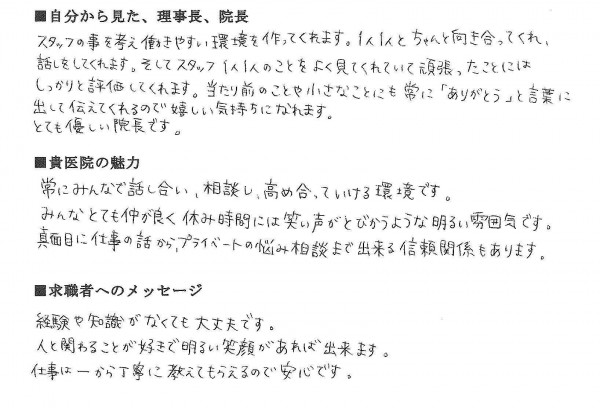 ■自分から見た、理事長、院長
スタッフの事を考え働きやすい環境を作ってくれます。1人1人とちゃんと向き合ってくれ、
話しをしてくれます。そしてスタッフ1人1人のことをよく見てくれていて頑張ったことには
しっかりと評価してくれます。当たり前のことや小さなことにも常に「ありがとう」と言葉に
出して伝えてくれるので嬉しい気持ちになれます。
とても優しい院長です。
■貴医院の魅力
常にみんなで話し合い、相談し、高め合っていける環境です。
みんなとても仲が良く休み時間には笑い声がとびかうような明るい雰囲気です。
真面目に仕事の話から、プライベートの悩み相談まで出来る信頼関係もあります。
■求職者へのメッセージ
経験や知識がなくても大丈夫です。
人と関わることが好きで明るい笑顔があれば出来ます。
仕事は一から丁寧に教えてもらえるので安心です。